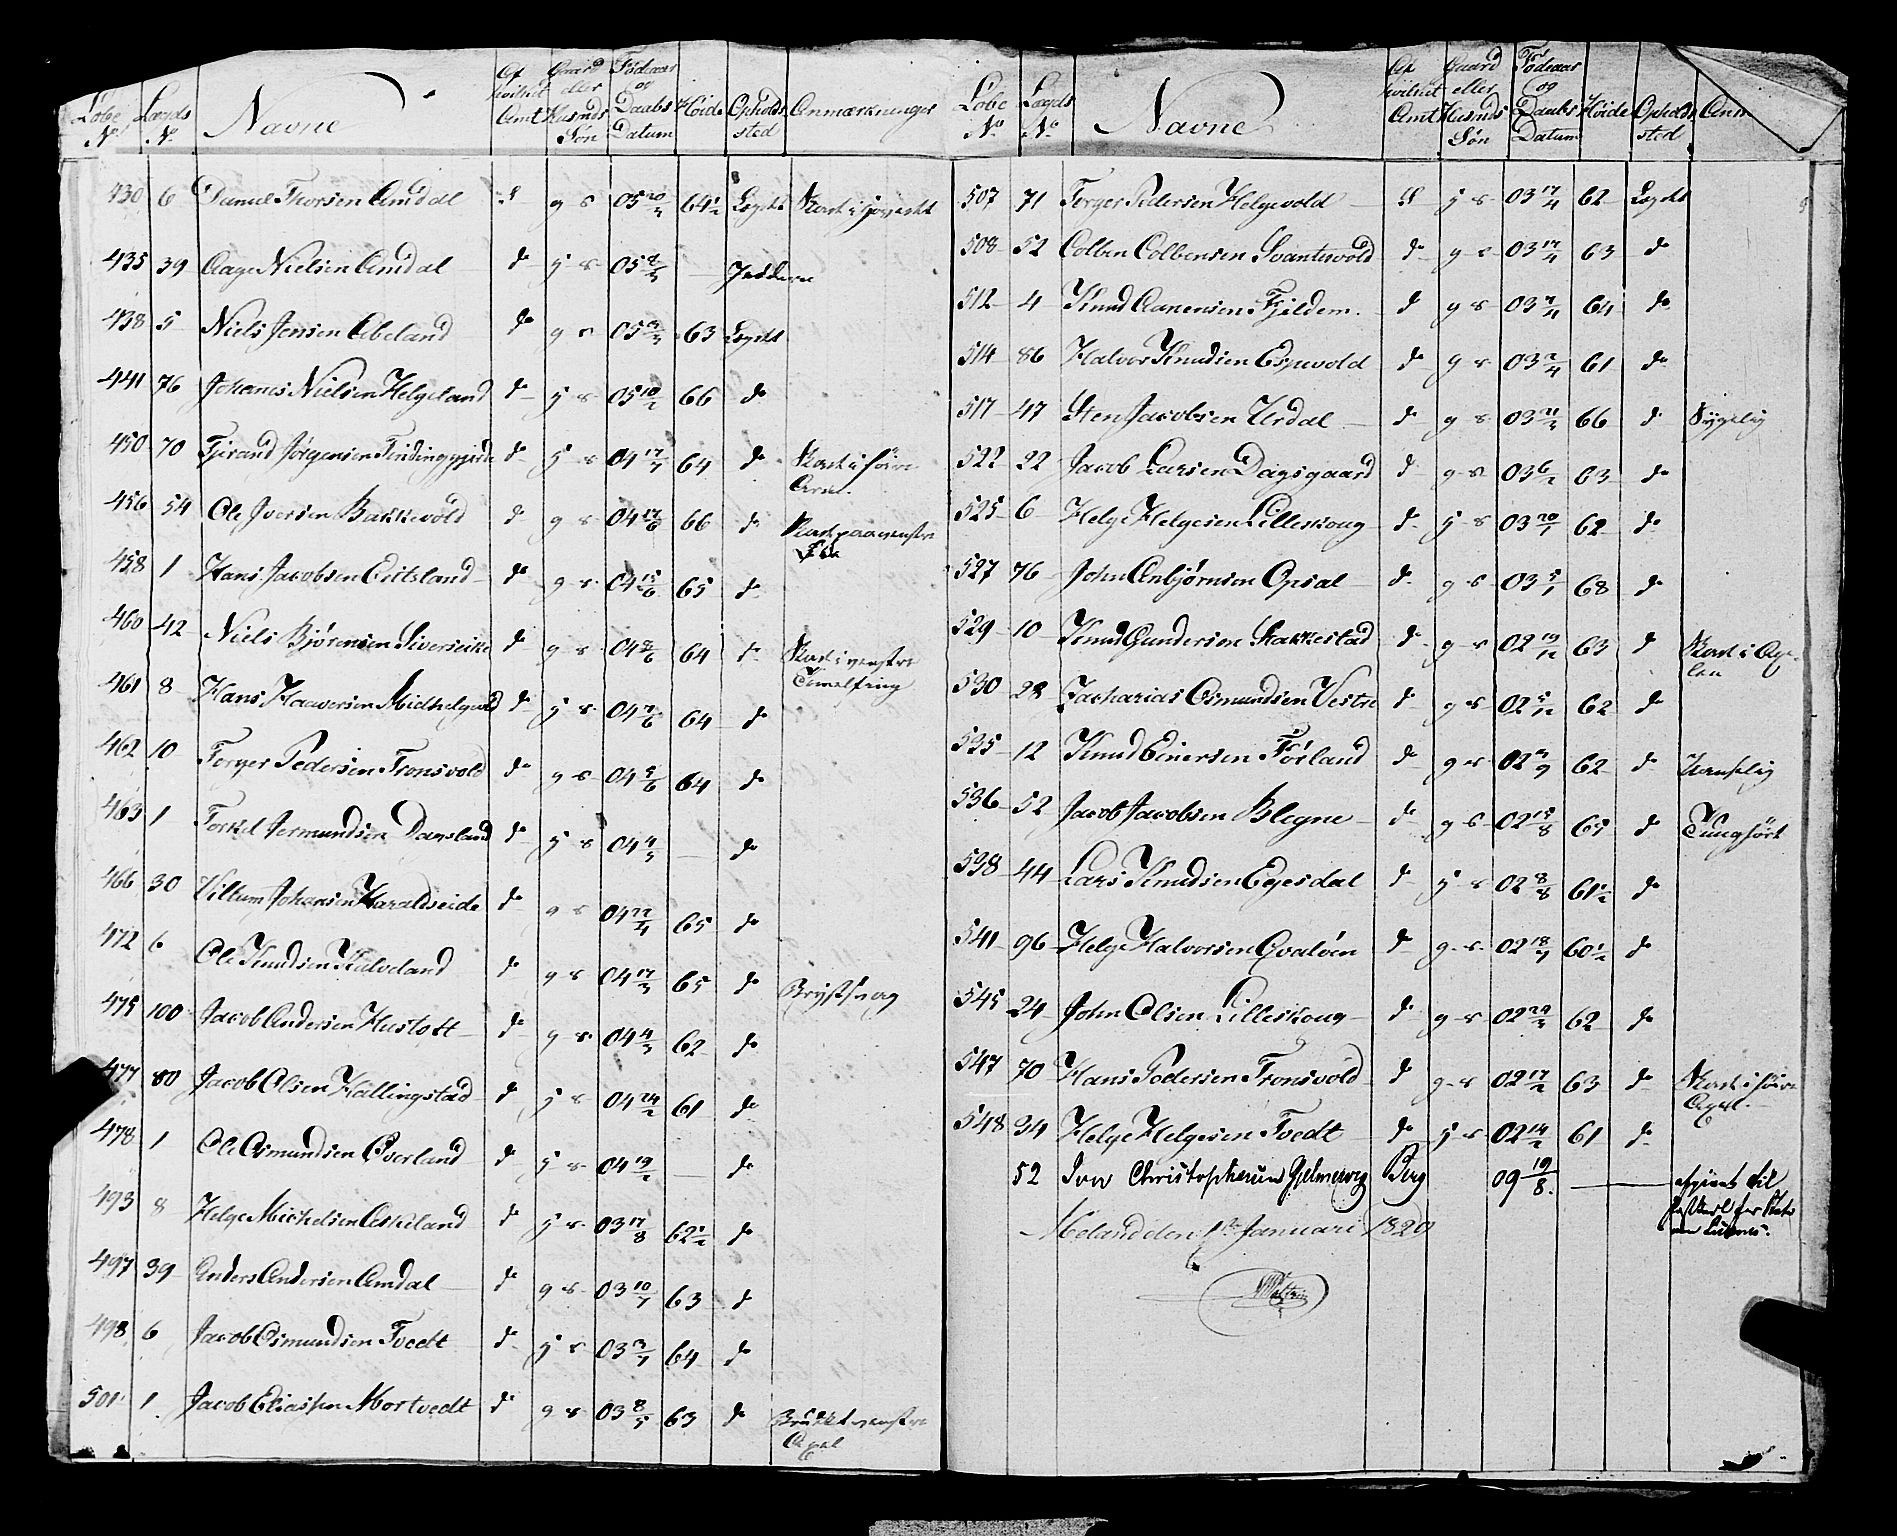 Løbe No. Lægds No. Navne Af hvilket Amt Gaard eller Huusmds Søn Fødeaar og Daabs Datum Høide Opholds sted Anmærkninger
430 6 Daniel Thorsen Amdal g s 05 20/3 64½ Lægdet
435 39 Aage Nielsen Amdal do j s 05 Jedderen
438 5 Niels Jensen Abeland do g s 05 63 Lægdet
441 76 Johanes Nielsen Helgeland do j s 05 10/2 66 do
450 70 Tjerand Jørgensen do j s 04 17/7 64 do Skadt i høire
Arm.
456 54 Ole Iversen Bakkevold do g s 04 17/6 66 do Skadt paa venstre
458 1 Hans Jacobsen Eritsland do g s 04 15/6 65 do
460 42 Niels Bjørensen do g s 04 8/6 64 do Skadt i venstre
Tomelfing
461 8 Hans Haaversen Midhelgevold do j s 04 7/6 64 do
462 10 Torger Pedersen Tronsvold do g s 04 5/6 64 do
463 1 Torkel Jermundsen Dansland do j s 04 4/5 — do
466 30 Villum Johansen Haraldseide do g s 04 22/4 65 do
472 6 Ole Knudsen Kalveland do g s 04 17/3 65 do Brystsvag
475 100 Jacob Andersen Hustoft do g s 04 4/3 62 do
477 80 Jacob Olsen Hallingstad do j s 04 24/2 61 do
478 1 Ole Osmundsen Øverland do j s 04 19/2 — do
493 8 Helge Michelsen Eskeland do j s 03 17/8 62½ do
497 39 Anders Andersen Amdal do g s 03 10/7 63 do
498 6 Jacob Osmundsen Tvedt do j s 03 3/7 64 do
501 1 Jacob Eliassen Mortvedt do g s 03 8/5 63 do Brukket venstre
Axel
Løbe No. Lægds No. Navne Af hvilket Amt Gaard eller Huusmds Søn Fødeaar og Daabs Datum Høide Opholds sted Anm
507 71 Torger Pedersen Helgevold j s 03 17/4 62 Lægdet
508 52 Colben Colbensen Svantesvold do g s 03 17/4 63 do
512 4 Knud Aanensen Fjildem. do g s 03 7/4 64 do
514 86 Halvor Knudsen Espevold do g s 03 2/4 61 do
517 47 Sten Jacobsen Urdal do g s 03 21/3 66 do Sygelig
522 22 Jacob Larsen Dagsgaard do g s 03 6/2 63 do
525 6 Helge Helgesen Lilleskoug do j s 03 20/1 62 do
527 76 John Anbjørnsen Opsal do g s 03 5/1 68 do
529 10 Knud Gundersen Stakkestad do g s 02 19/12 63 do Skadt i Ax-
len
530 28 Zacharias Osmundsen Vestre do g s 02 5/12 62 do
535 12 Knud Einersen Førland do g s 02 3/9 62 do
536 52 Jacob Jacobsen Blegne do g s 02 15/8 65 do Tunghørt
538 44 Lars Knudsen Egesdal do j s 02 8/8 61½ do
541 96 Helge Halvorsen Qvaløen do g s 02 18/7 60½ do
545 24 John Olsen Lilleskoug do g s 02 24/3 62 do
547 70 Hans Pedersen Tronsvold do g s 02 17/2 63 do Skadt i høire
Axel.
548 34 Helge Helgesen Tvedt do j s 02 14/2 61 do
52 Iver Christophersen Berg 09 19/8. — afgivet til
Meland den 1ste Januari 1829